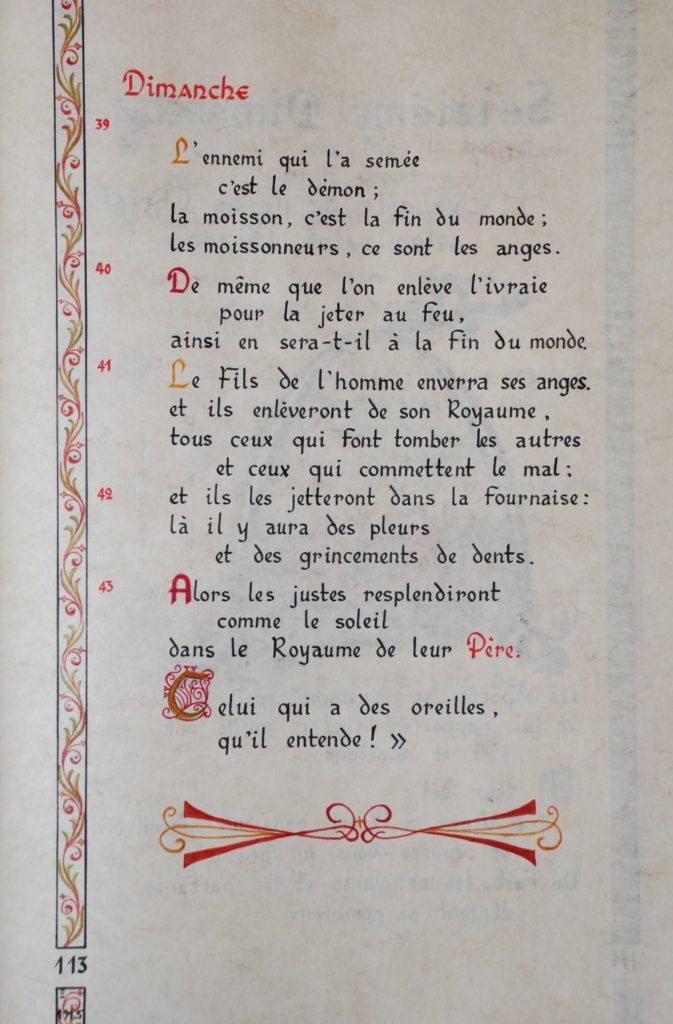 Dimanche
39
L'ennemi qui l'a semée
c'est le démon ;
la moisson, c'est la fin du monde ;
les moissonneurs, ce sont les anges.
40
De même que l'on enlève l'ivraie
pour la jeter au feu,
ainsi en sera-t-il à la fin du monde.
41
Le Fils de l'homme enverra ses anges.
et ils enlèveront de son Royaume,
tous ceux qui font tomber les autres
et ceux qui commettent le mal ;
42
et ils les jetteront dans la fournaise :
là il y aura des pleurs
et des grincements de dents.
43
Alors les justes resplendiront
comme le soleil
dans le Royaume de leur Père.
Celui qui a des oreilles,
qu'il entende ! »
113